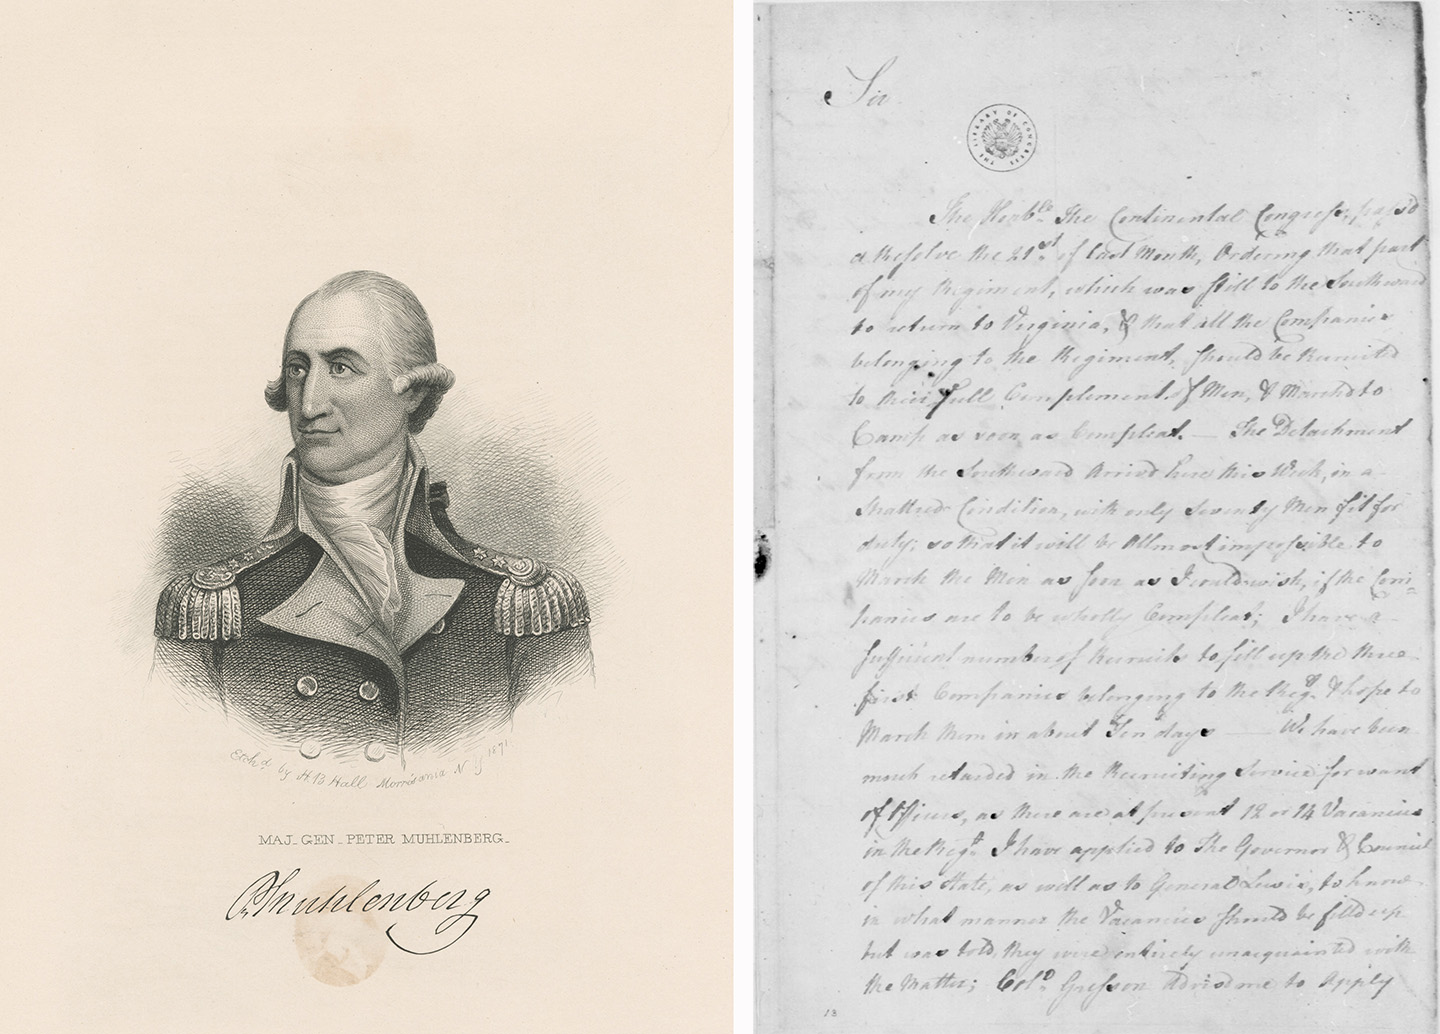 Etch'd by H.B Hall Morrisania N Y 1871.
MAJ. GEN. PETER MUHLENBERG.
P. Muhlenberg
Sir
THE LIBRARY OF CONGRESS
The Honble The Continental Congress, pass'd
a Resolve the 21st of last Month, Ordering that part
of my Regiment, which was still to the Southward
to return to Virginia, & that all the Companies
belonging to the Regiment, should be Recruited
to their full Complement of Men, & March'd to
Camp as soon as Compleat. — The Detachment
from the Southward Arriv'd here this Week, in a
Shatterd Condition, with only Seventy Men fit for
duty; so that it will be Allmost impossible to
March the Men as soon as I could wish, if the Com=
panies are to be wholly Compleat; I have a
Sufficient number of Recruits to fill up the three
first Companies belonging to the Regt. & hope to
March them in about Ten days — We have been
much retarded in the Recruiting Service for want
of Officers, as there are at present 12 or 14 Vacancies
in the Regt. I have applied to The Governor & Council
of this State, as well as to General Lewis, to know
in what manner the Vacancies should be filld up
but was told, they were intirely unacquainted with
the Matter; Colo. Greyson Advisd me to Apply
13